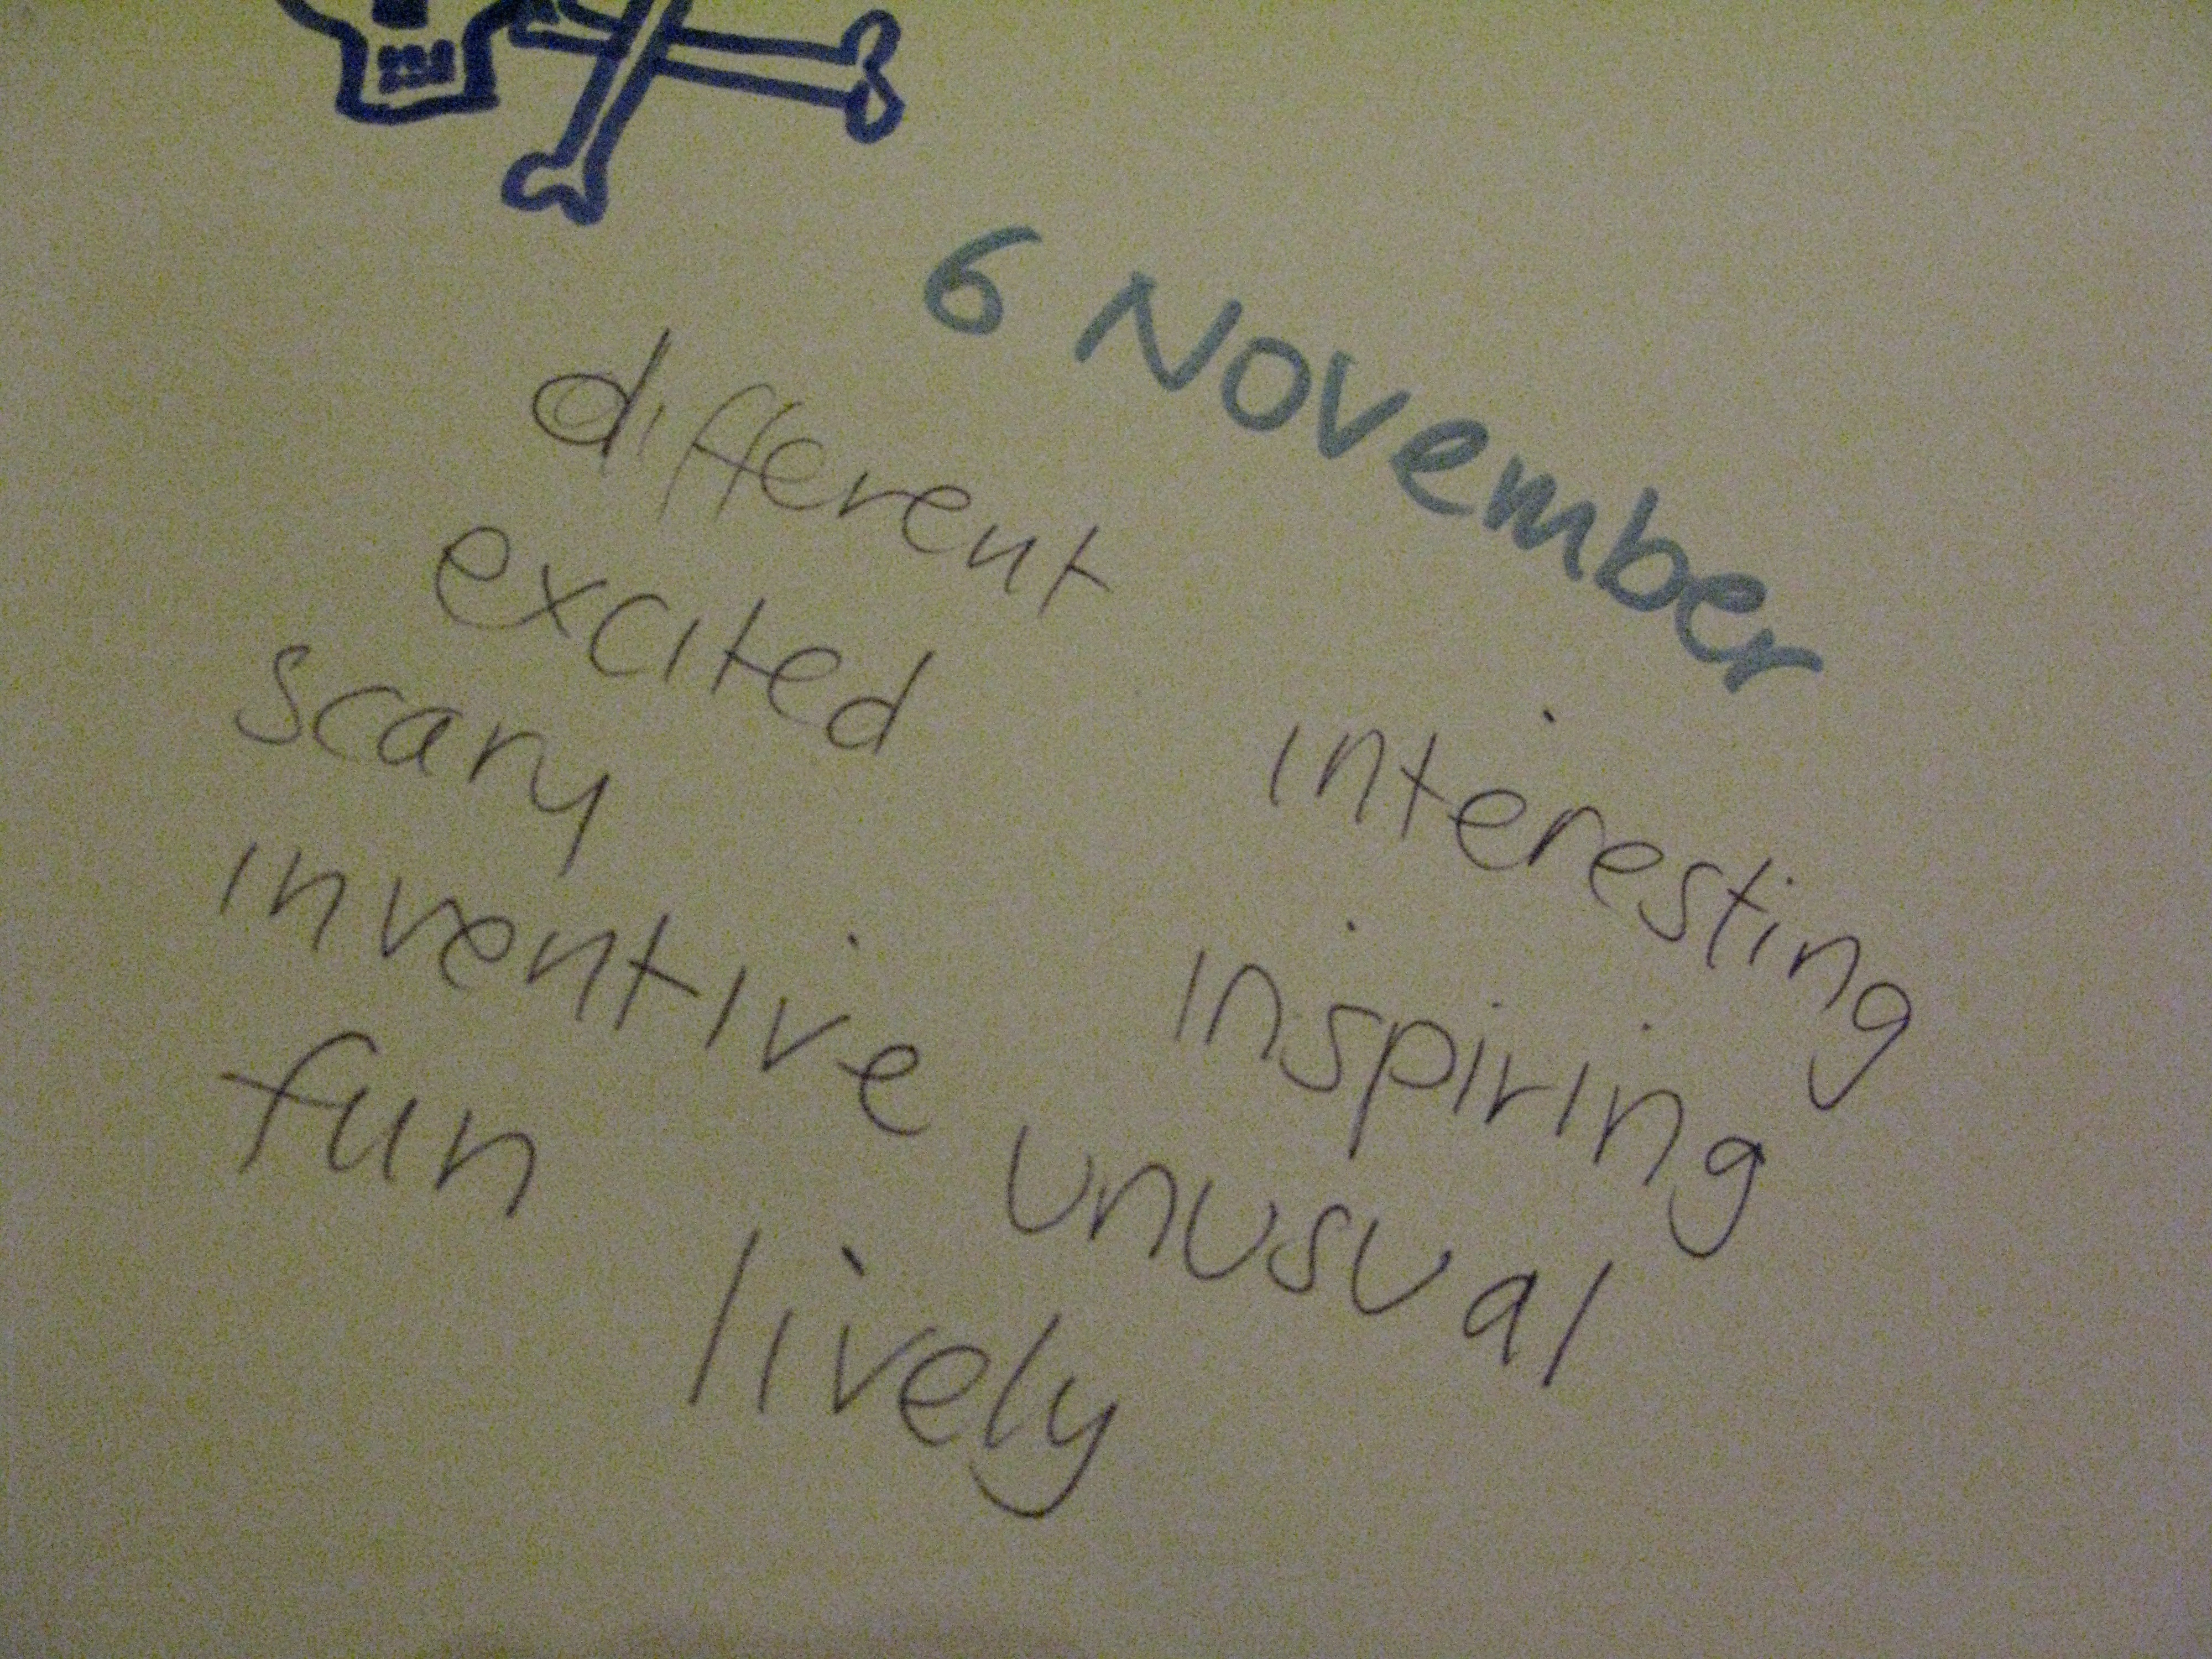 6 November
different
excited
scary
inventive
fun
interesting
inspiring
unusual
lively